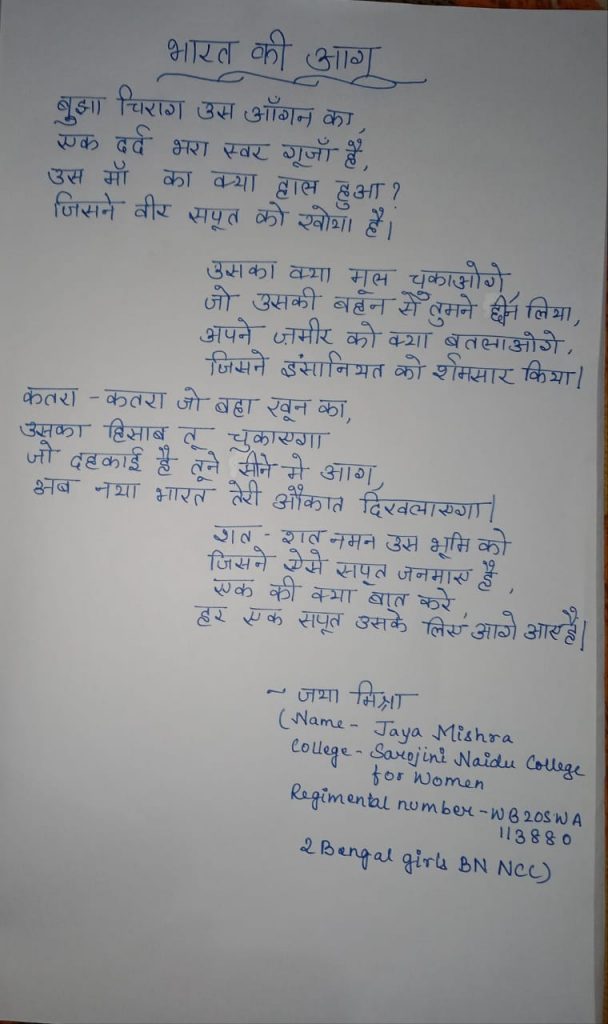 भारत की आग
बुझा चिराग उस आँगन का,
एक दर्द भरा स्वर गूजाँ है,
उस माँ का क्या हाल हुआ?
जिसने वीर सपूत को खोया है।
उसका क्या मूल चुकाओगे,
जो उसकी बहन से तुमने छीन लिया,
अपने ज़मीर को क्या बतलाओगे,
जिसने इंसानियत को र्शमसार किया।
कतरा - कतरा जो बहा खून का,
उसका हिसाब तू चुकाएगा
जो दहकाई है तूने सीने मे आग,
अब नया भारत तेरी औकात दिखलाएगा।
शत - शत नमन उस भूमि को
जिसने ऐसे सपूत जनमाए है,
एक की क्या बात करे,
हर एक सपूत उसके लिए आगे आए है।
~ जया मिश्रा
(Name - Jaya Mishra
College - Sarojini Naidu College
for Women
Regimental number - WB20SWA
113880
2 Bengal girls BN NCC)